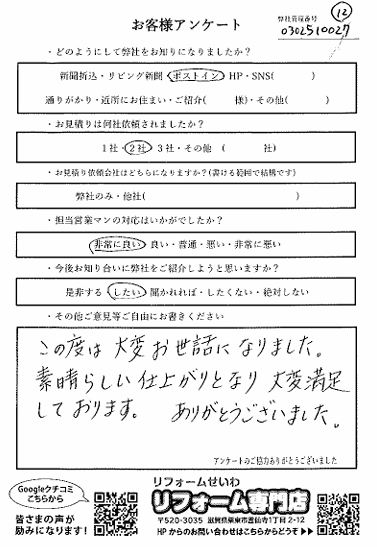 お客様アンケート
弊社資産番号
⑫
0302510027
・どのようにして弊社をお知りになりましたか?
新聞折込・リビング新聞・ポストイン・HP・SNS( )
通りがかり・近所にお住まい・ご紹介( 様)・その他( )
・お見積りは何社依頼されましたか?
1社・2社・3社・その他 ( 社)
・お見積り依頼会社はどちらになりますか?(書ける範囲で結構です)
弊社のみ・他社( )
・担当営業マンの対応はいかがでしたか?
非常に良い・良い・普通・悪い・非常に悪い
・今後お知り合いに弊社をご紹介しようと思いますか?
是非する・したい・聞かれれば・したくない・絶対しない
・その他ご意見等ご自由にお書きください
この度は 大変 お世話に なりました。
素晴らしい 仕上がりとなり 大変満足
して おります。 ありがとうございました。
アンケートのご協力ありがとうございました
Googleクチコミ
こちらから
皆さまの声が
励みになります!
リフォームせいわ
リフォーム専門店
〒520-3035 滋賀県栗東市霊仙寺1丁目2-12
HPからのお問い合わせはこちらからどうぞ▶▶